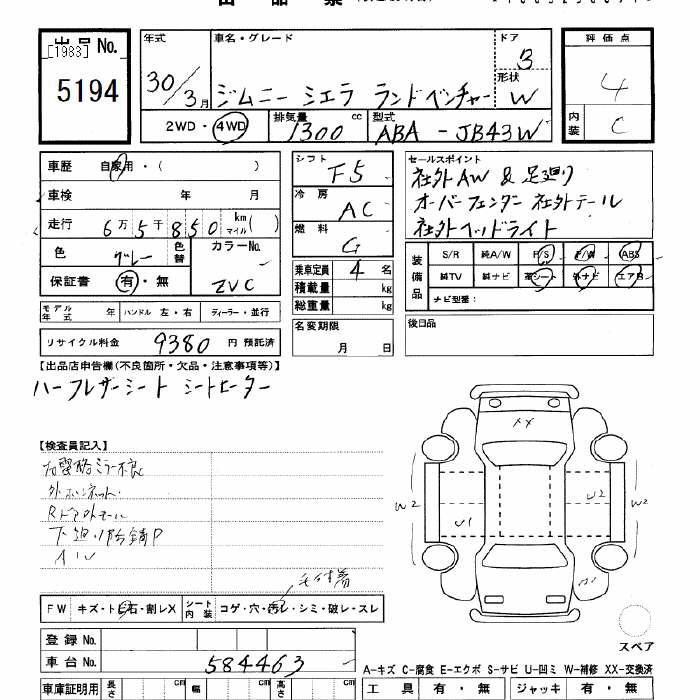 [1983] No.
5194
年式
30/3月
車名・グレード
ジムニー シエラ ランドベンチャー
ドア
3
形状
W
評価点
4
内装
C
2WD・4WD
排気量
1300 cc
型式
ABA - JB43W
車歴 自家用・( )
車検 年 月
走行 6万5千850 km マイル ( )
色 グレー 色替 カラーNo.
ZVC
保証書 有・無
シフト
F5
冷房
AC
燃料
G
乗車定員 4 名
積載量 kg
総重量 kg
名変期限
月 日
セールスポイント
社外AW & 足廻り
オーバーフェンダー 社外テール
社外ヘッドライト
装備品
S/R 純A/W P/S P/W ABS
純TV 純ナビ 革シート 外ナビ エアB
ナビ型番:
後日品
モデル年式 年 ハンドル 左・右 ディーラー・並行
リサイクル料金 9380 円 預託済
【出品店申告欄(不良箇所・欠品・注意事項等)】
ハーフレザーシート シートヒーター
【検査員記入】
外ボンネット
下廻り
AW
XX
W2
U1
U2
W2
毛付着
FW キズ・ト石・割レX シート内装 コゲ・穴・汚レ・シミ・破レ・スレ
登録 No.
車台 No. 584463
スペア
A-キズ C-腐食 E-エクボ S-サビ U-凹ミ W-補修 XX-交換済
車庫証明用 長さ cm 幅 cm 高さ cm
工具 有・無 ジャッキ 有・無